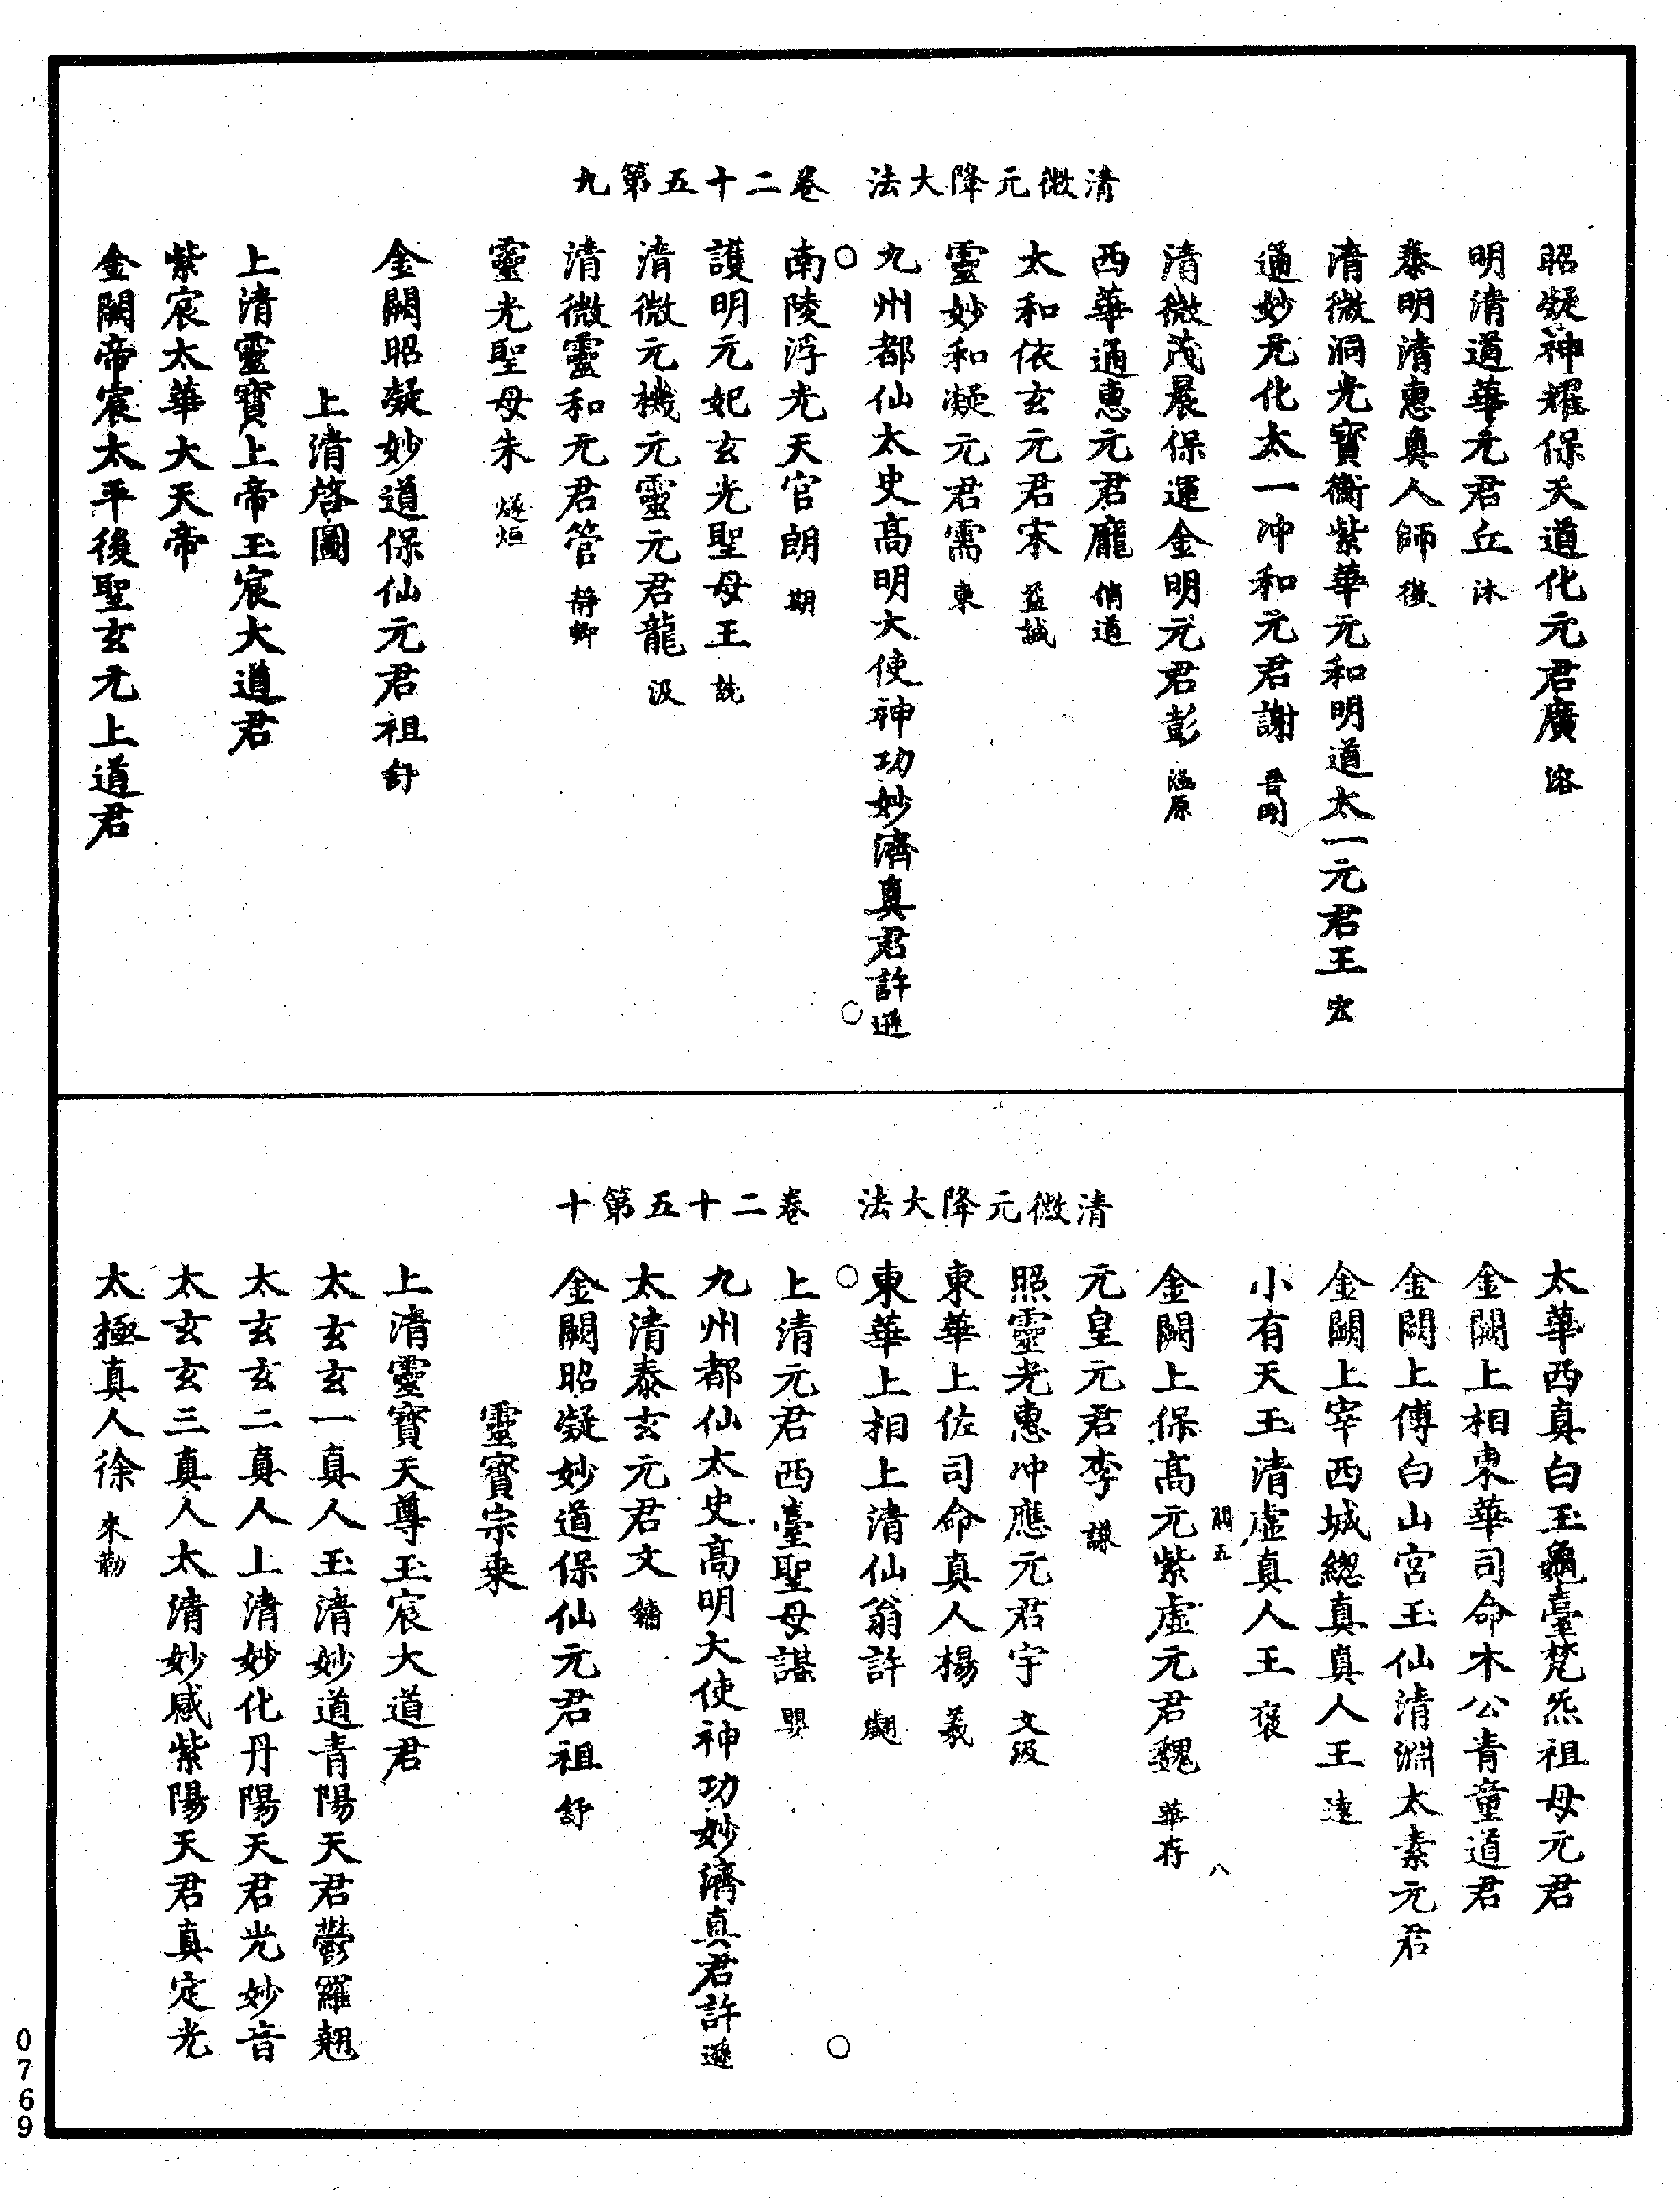 清微元降大法　卷二十五第九
昭凝神耀保天道化元君廣溶
明清道華元君丘沐
泰明清惠真人師
清微洞光寶衡紫華元和明道太一元君王宏
通妙元化太一冲和元君謝晋明
清微茂晨保運金明元君彭涵原
西華通惠元君龐俏道
太和依玄元君宋益誠
靈妙和凝元君需東
九州都仙太史高明大使神功妙濟真君許遜
南陵浮光天官朗期
護明元妃玄光聖母王詵
清微元機元靈元君龍汲
清微靈和元君管靜卿
靈光聖母朱燧烜
金闕昭凝妙道保仙元君祖舒
上清啓圖
上清靈寶上帝玉宸大道君
紫宸太華大天帝
金闕帝宸太平後聖玄元上道君
清微元降大法　卷二十五第十
太華西真白玉龜臺梵炁祖母元君
金闕上相東華司命木公青童道君
金闕上傅白山宮玉仙清淵太素元君
金闕上宰西城總真真人王遠
小有天王清虛真人王褒
闕五　八
金闕上保高元紫虛元君魏華存
元皇元君李謙
照靈光惠冲應元君宇文㞩
東華上佐司命真人楊羲
東華上相上清仙翁許翽
上清元君西臺聖母諶嬰
九州都仙太史高明大使神功妙濟真君許遜
太清泰玄元君文鏞
金闕昭凝妙道保仙元君祖舒
靈寶宗乘
上清靈寶天尊玉宸大道君
太玄玄一真人玉清妙道青陽天君鬱羅翹
太玄玄二真人上清妙化丹陽天君光妙音
太玄玄三真人太清妙感紫陽天君真定光
太極真人徐來勒
0769